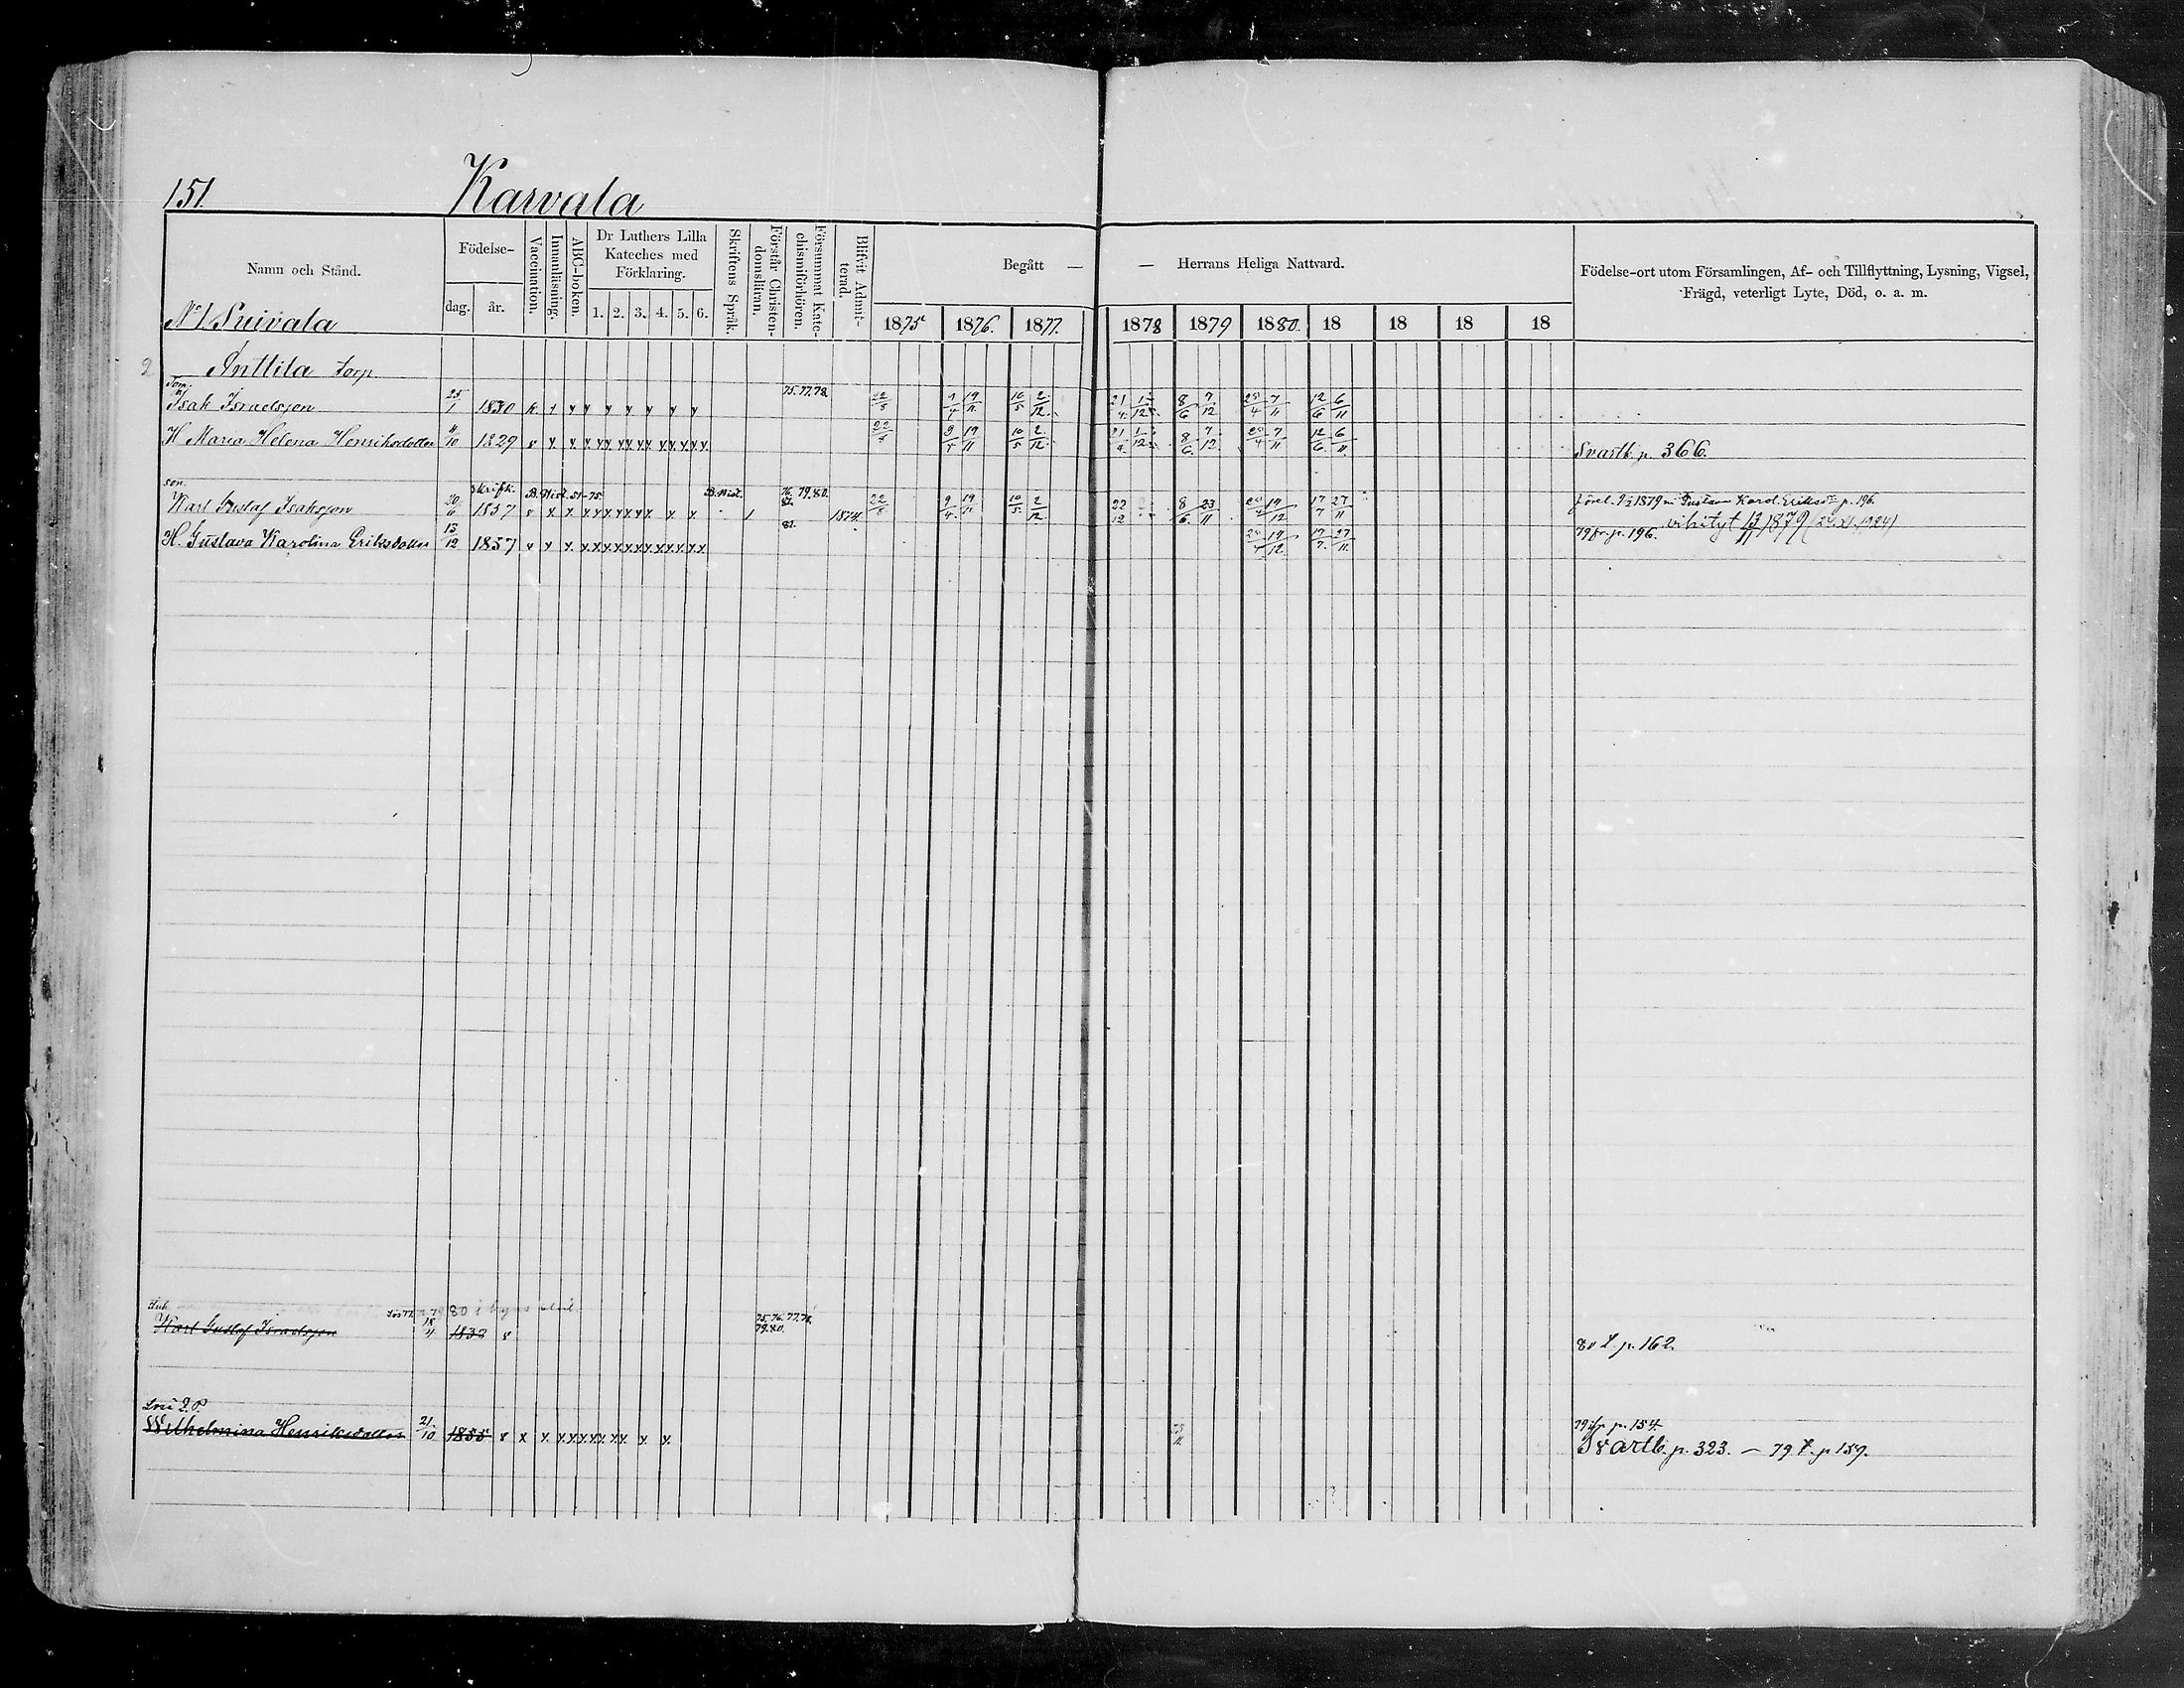 151. Karvala
Namn och Stånd.
Födelse-
dag. år.
Vaccination.
Innanläsning.
ABC-boken.
Dr Luthers Lilla Kateches med Förklaring.
1. 2. 3. 4. 5. 6.
Skriftens Språk.
Förstår Christendomsläran.
Försummat Katechismiförhören.
Blifvit Admitterad.
Begått — — Herrans Heliga Nattvard.
1875 1876. 1877. 1878 1879 1880. 18 18 18 18
Födelse-ort utom Församlingen, Af- och Tillflyttning, Lysning, Vigsel,
Frägd, veterligt Lyte, Död, o. a. m.
No 1 Suivala
Anttila torp
Torp.
75.77.78.
Isak Israelsson 25/1 1830 22/8 9/4 19/11 10/5 2/12 21/4 8/6 7/12 25/4 7/11 12/6 6/11
H Maria Helena Henriksdotter 4/10 1829 22/8 9/4 19/11 10/5 2/12 21/4 8/6 7/12 25/4 7/11 12/6 6/11 Svartb. p. 366.
son. Skriftk. B. Hist. 51-75 B. Hist. 76. 79.80.
Karl Gustaf Isaksson 20/6 1857 1 1874 22/8 9/4 19/11 10/5 2/12 22/12 8/6 23/11 25/4 19/12 17/7 27/11
1879 m Gustava Karol. Eriksdr p. 196.
vihityt 1879 (24.XI.1924)
H. Gustava Karolina Eriksdotter 13/12 1857 81. 25/4 19/12 17/7 27/11 79 fr. p. 196.
75.76.77.78.
79.80.
Karl Gustaf Israelsson 18/4 1832 80 t. p. 162.
Wilhelmina Henriksdotter 21/10 1855 79 fr p. 154.
Svartb. p. 323. — 79 t. p 159.